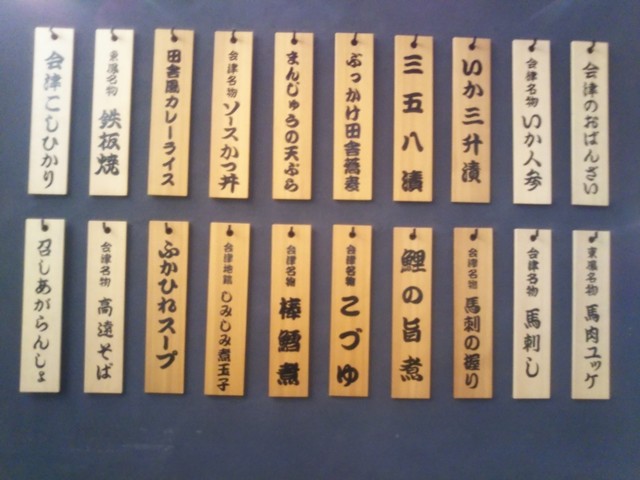 会津のおばんざい
会津名物 いか人参
いか三升漬
三五八漬
ぶっかけ田舎蕎麦
まんじゅうの天ぷら
会津名物 ソースかつ丼
田舎風カレーライス
東鳳名物 鉄板焼
会津こしひかり
東鳳名物 馬肉ユッケ
会津名物 馬刺し
会津名物 馬刺の握り
鯉の旨煮
会津名物 こづゆ
会津名物 棒鱈煮
会津地鶏 しみしみ煮玉子
ふかひれスープ
会津名物 高遠そば
召しあがらんしょ